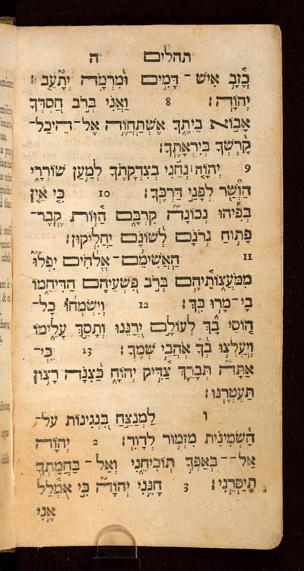 תהלים ה
כָזָב אִישׁ־דָּמִים וּמִרְמָה יְתָעֵב ׀
יְהוָה׃ 8 וַאֲנִי בְּרֹב חַסְדְּךָ
אָבוֹא בֵיתֶךָ אֶשְׁתַּחֲוֶה אֶל־הֵיכַל־
קָדְשְׁךָ בְּיִרְאָתֶךָ׃
9 יְהוָה ׀ נְחֵנִי בְצִדְקָתֶךָ לְמַעַן שׁוֹרְרָי
הַוֹשַׁר לְפָנַי דַּרְכֶּךָ׃ 10 כִּי אֵין
בְּפִיהוּ נְכוֹנָה קִרְבָּם הַוּוֹת קֶבֶר־
פָּתוּחַ גְּרֹנָם לְשׁוֹנָם יַחֲלִיקוּן׃
11 הַאֲשִׁימֵם ׀ אֱלֹהִים יִפְּלוּ
מִמֹּעֲצוֹתֵיהֶם בְּרֹב פִּשְׁעֵיהֶם הַדִּיחֵמוֹ
כִּי־מָרוּ בָךְ׃ 12 וְיִשְׂמְחוּ כָל־
חוֹסֵי בָךְ לְעוֹלָם יְרַנֵּנוּ וְתָסֵךְ עָלֵימוֹ
וְיַעְלְצוּ בְךָ אֹהֲבֵי שְׁמֶךָ׃ 13 כִּי־
אַתָּה תְּבָרֵךְ צַדִּיק יְהוָה כַּצִּנָּה רָצוֹן
תַּעְטְרֶנּוּ׃
ו לַמְנַצֵּחַ בִּנְגִינוֹת עַל־
הַשְּׁמִינִית מִזְמוֹר לְדָוִד׃ 2 יְהוָה
אַל־־בְּאַפְּךָ תוֹכִיחֵנִי וְאַל־בַּחֲמָתְךָ
תְיַסְּרֵנִי׃ 3 חָנֵּנִי יְהוָה כִּי אֻמְלַל
אָנִי